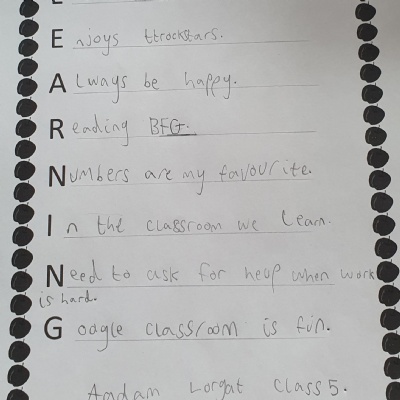 Enjoys ttrockstars.
Always be happy.
Reading BFG.
Numbers are my favourite.
In the classroom we learn.
Need to ask for heop when work
is hard.
Google classroom is fun.
Aadam Lorgat Class 5.